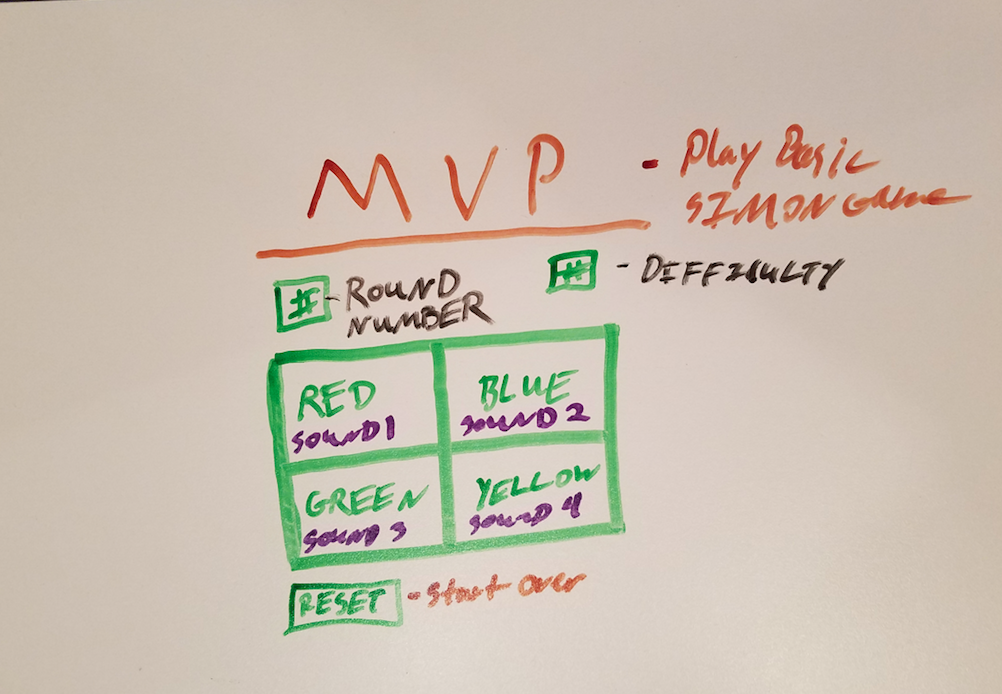 MVP
- Play Basic
SIMON Game
# - ROUND
NUMBER
# - DIFFICULTY
RED
SOUND 1
BLUE
SOUND 2
GREEN
SOUND 3
YELLOW
SOUND 4
RESET - Start over